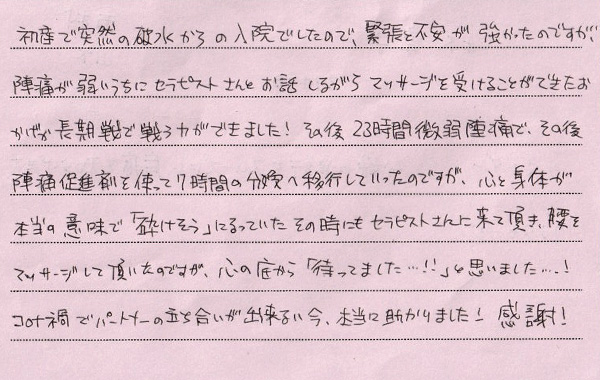 初産で突然の破水からの入院でしたので、緊張と不安が強かったのですが、
陣痛が弱いうちにセラピストさんとお話しながらマッサージを受けることができたお
かげか長期戦で戦う力ができました！その後23時間微弱陣痛で、その後
陣痛促進剤を使って7時間の分娩へ移行していったのですが、心と身体が
本当の意味で「砕けそう」になっていたその時にもセラピストさんに来て頂き、腰を
マッサージして頂いたのですが、心の底から「待ってました…!!」と思いました…！
コロナ禍でパートナーの立ち合いが出来ない今、本当に助かりました！感謝！